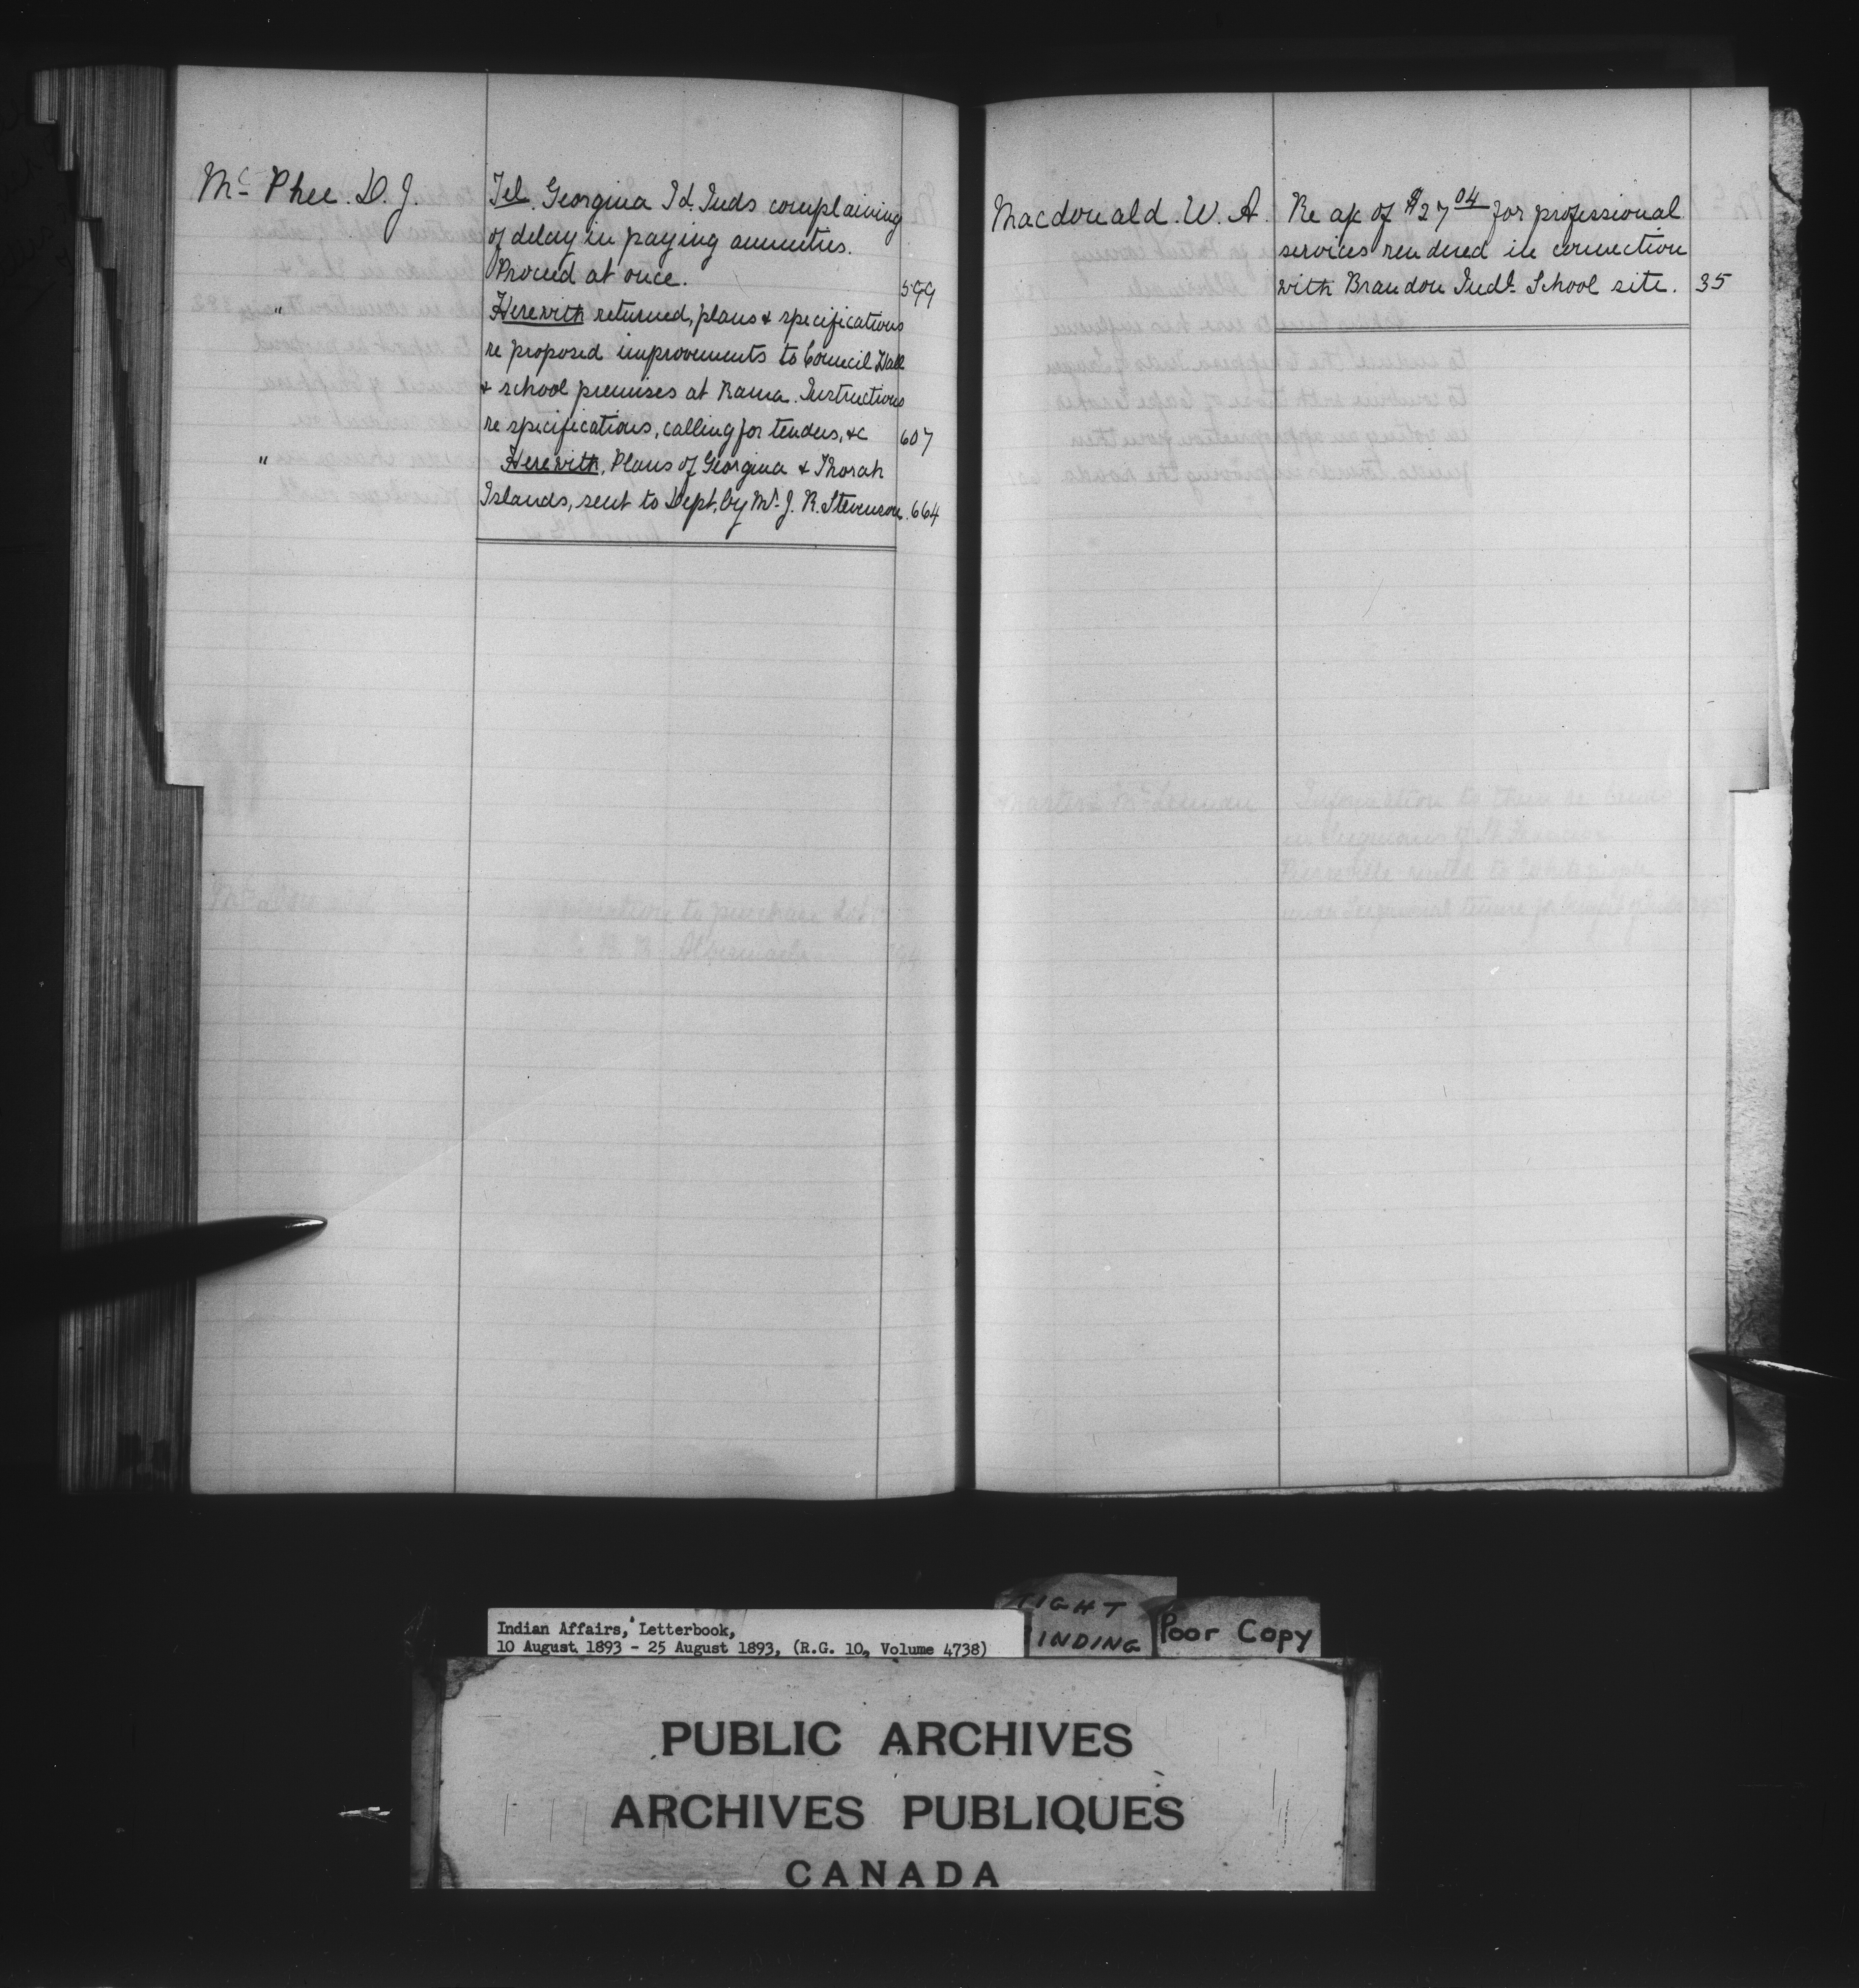 Mc Phee. D. J.
Tel. Georgina Id. Inds complaining
of delay in paying annuities.
Proceed at once. 599
" Herewith returned, plans & specifications
re proposed improvements to Council Hall
& school premises at Rama. Instructions
re specifications, calling for tenders, &c 607
" Herewith, Plans of Georgina & Thorah
Islands, sent to Dept. by Mr. J. R. Stevenson. 664
Macdonald. W. A.
Re a/c of $27 04 for professional
services rendered in connection
with Brandon Indl. School site. 35
Indian Affairs, Letterbook,
10 August 1893 - 25 August 1893, (R.G. 10, Volume 4738)
TIGHT
INDING
Poor Copy
PUBLIC ARCHIVES
ARCHIVES PUBLIQUES
CANADA